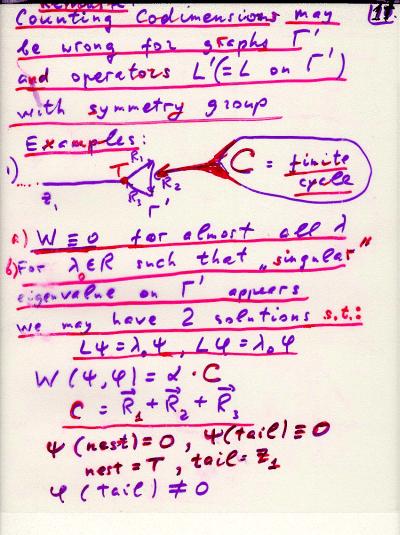 Remark: 17
Counting Codimensions may
be wrong for graphs Γ'
and operators L'(=L on Γ')
with symmetry group
Examples:
1) z₁ T R₁ R₂ R₃ Γ' C = finite
cycle
a) W ≡ 0 for almost all λ
b) For λ₀∈R such that „singular"
eigenvalue on Γ' appears
we may have 2 solutions s.t.:
Lψ=λ₀ψ, Lφ=λ₀φ
W(ψ,φ)=α·C
C = R⃗₁+R⃗₂+R⃗₃
ψ(nest)=0, ψ(tail)≡0
nest=T, tail=z₁
φ(tail)≠0